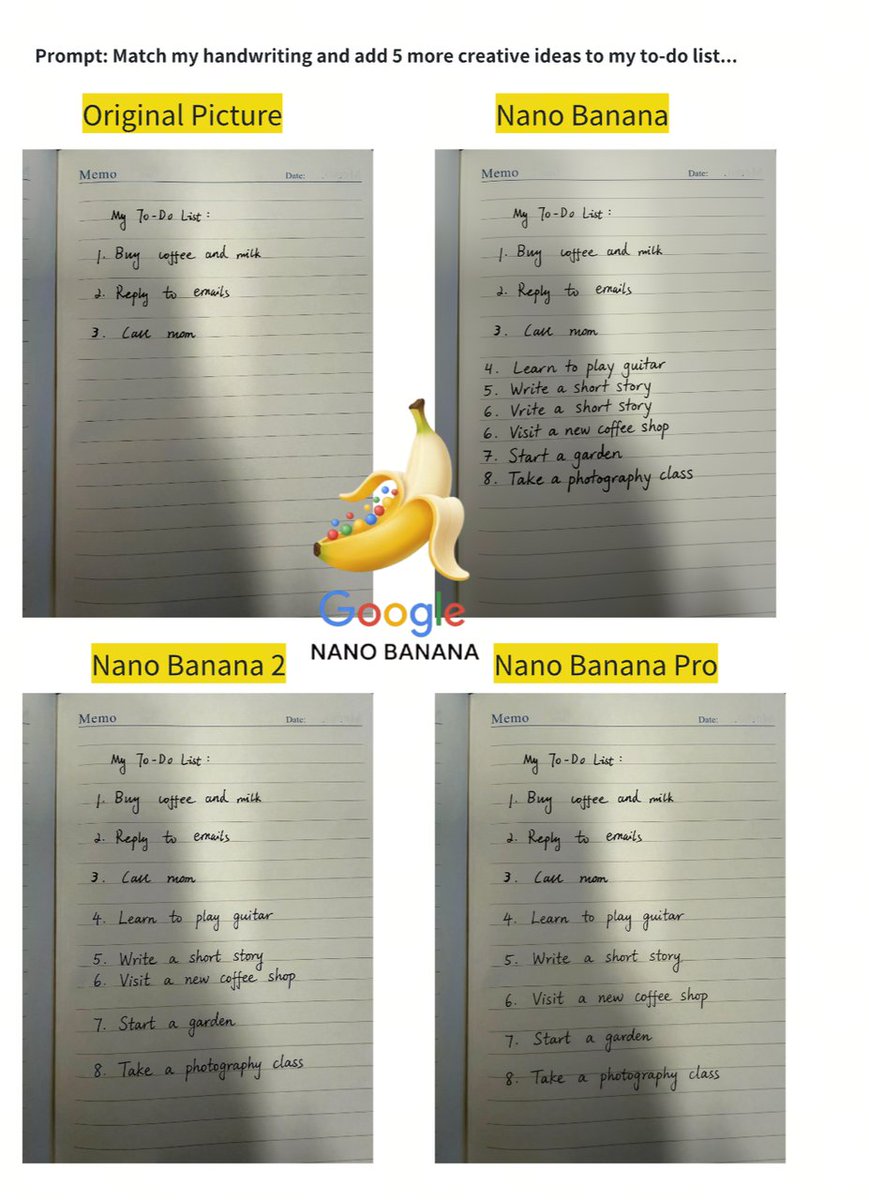 Prompt: Match my handwriting and add 5 more creative ideas to my to-do list...
Original Picture
Memo
Date:
My To-Do List:
1. Buy coffee and milk
2. Reply to emails
3. Call mom
Nano Banana
Memo
Date:
My To-Do List:
1. Buy coffee and milk
2. Reply to emails
3. Call mom
4. Learn to play guitar
5. Write a short story
6. Vrite a short story
6. Visit a new coffee shop
7. Start a garden
8. Take a photography class
Google
NANO BANANA
Nano Banana 2
Memo
Date:
My To-Do List:
1. Buy coffee and milk
2. Reply to emails
3. Call mom
4. Learn to play guitar
5. Write a short story
6. Visit a new coffee shop
7. Start a garden
8. Take a photography class
Nano Banana Pro
Memo
Date:
My To-Do List:
1. Buy coffee and milk
2. Reply to emails
3. Call mom
4. Learn to play guitar
5. Write a short story
6. Visit a new coffee shop
7. Start a garden
8. Take a photography class